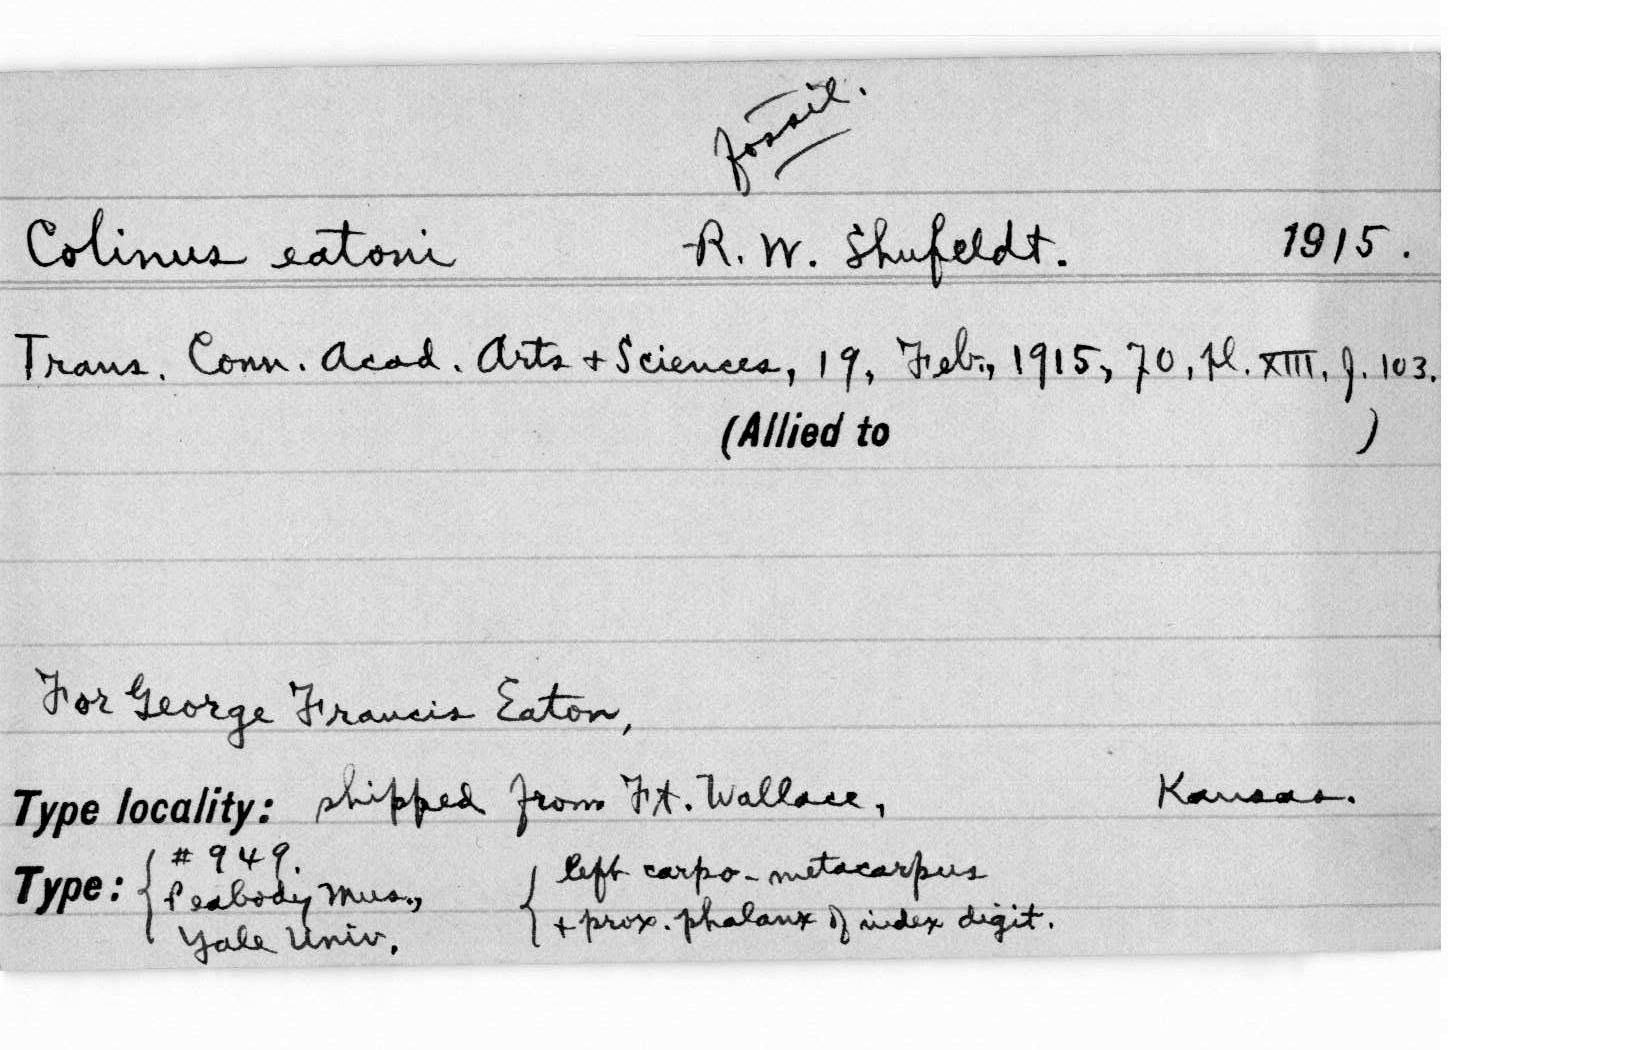 fossil.
Colinus eatoni R. W. Shufeldt. 1915.
Trans. Conn. Acad. Arts + Sciences, 19, Feb., 1915, 70, pl. XIII, f. 103.
(Allied to )
For George Francis Eaton,
Type locality: shipped from Ft. Wallace, Kansas.
Type: { # 949. { left carpo-metacarpus
Peabody Mus., + prox. phalanx of index digit.
Yale Univ.